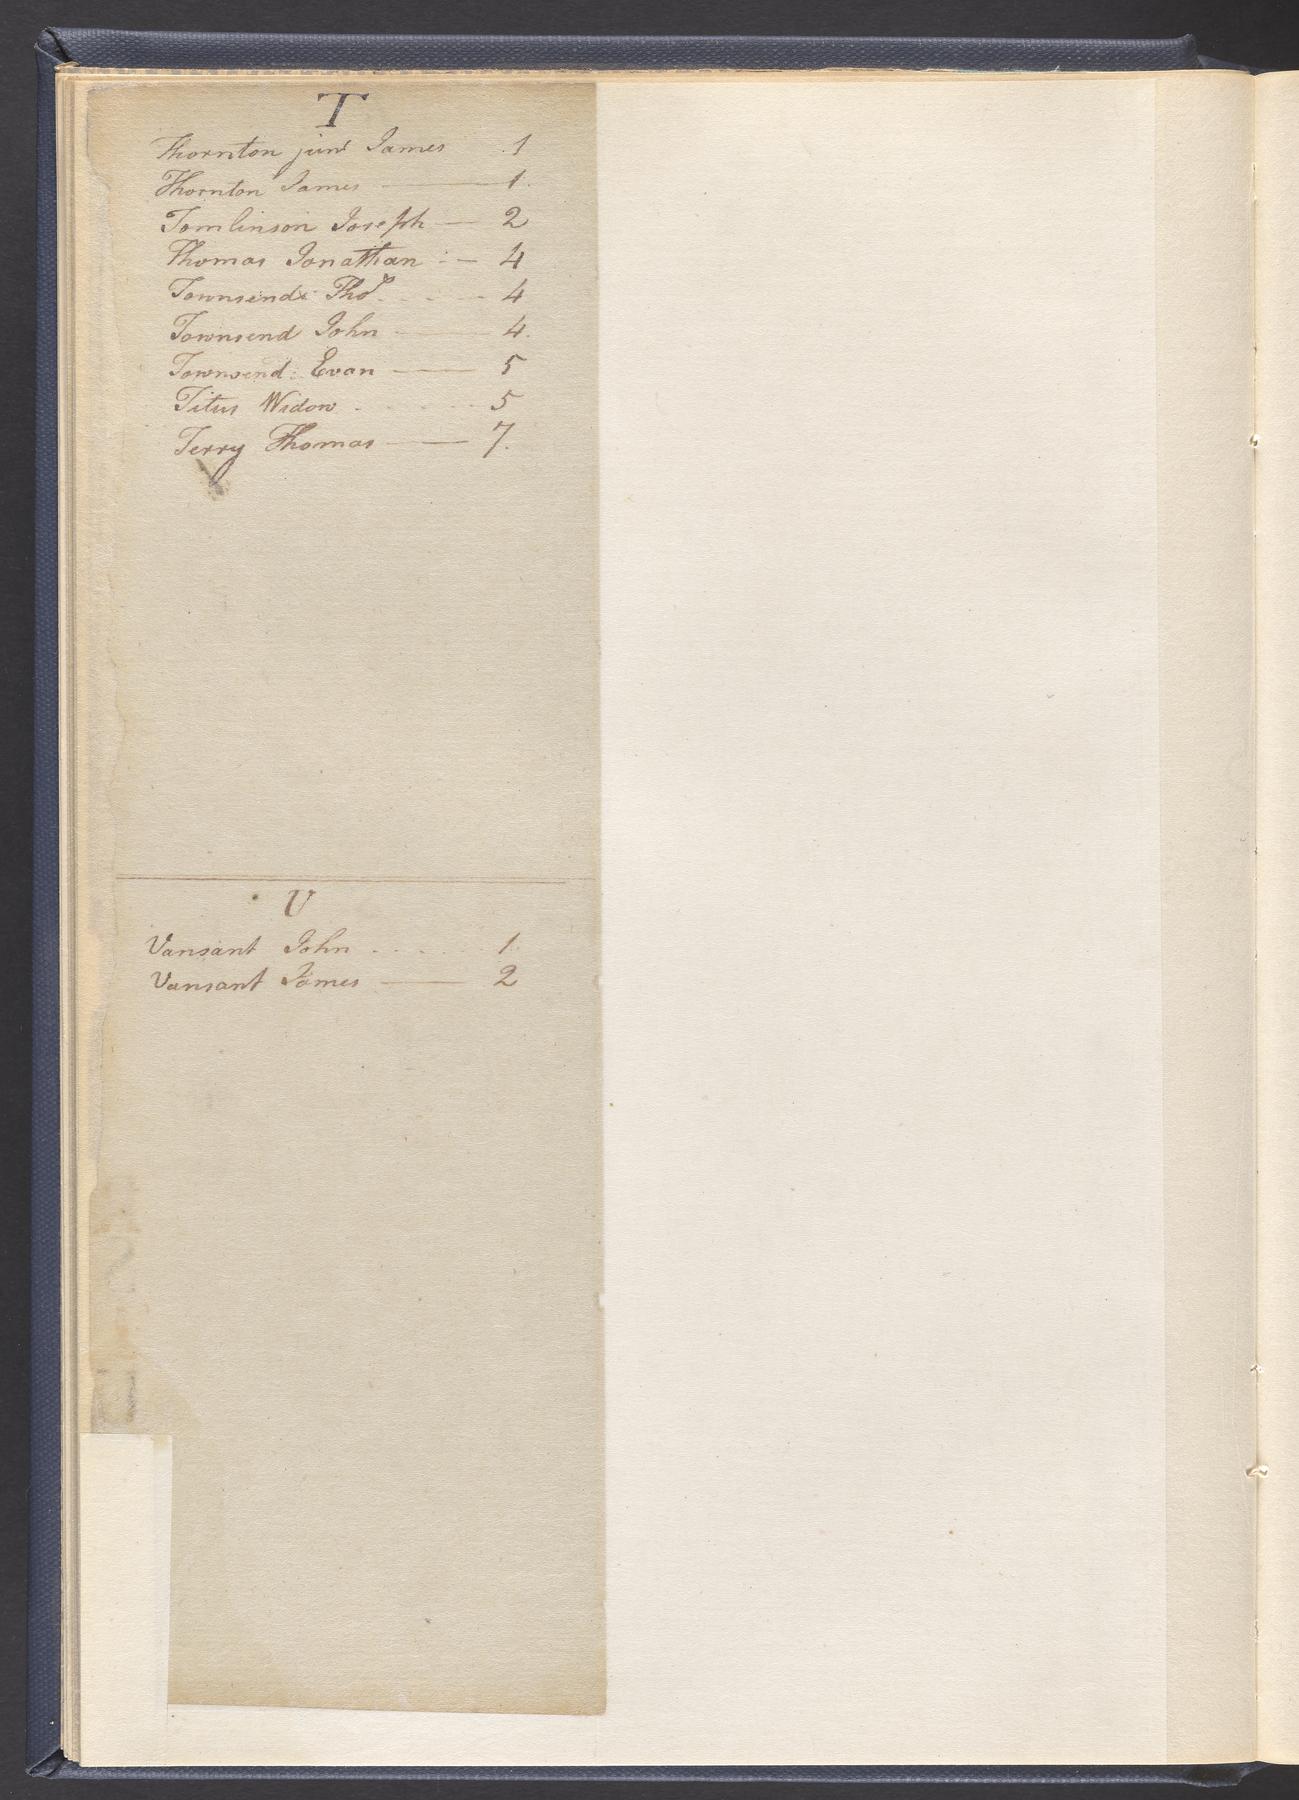 T
Thornton junr James 1
Thornton James — 1.
Tomlinson Joseph — 2
Thomas Jonathan : — 4
Townsend Thos - - - 4
Townsend John — 4.
Townsend Evan — 5
Titus Widow - - - 5
Terry Thomas — 7.
U
Vansant John - - - - 1
Vansant James — 2